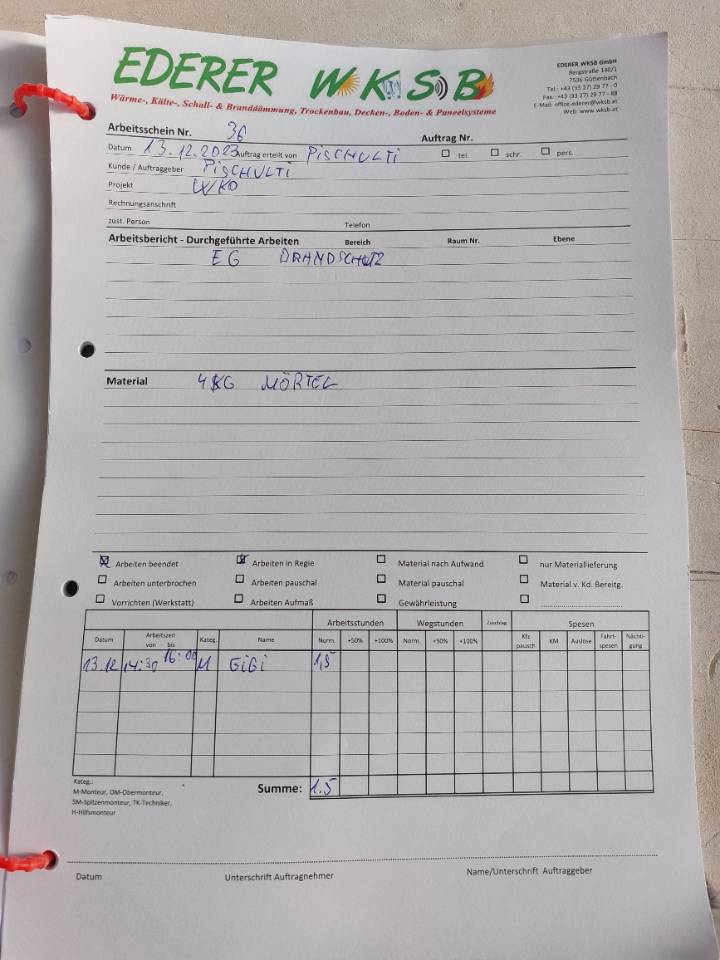 EDERER WKSB
Wärme-, Kälte-, Schall- & Branddämmung, Trockenbau, Decken-, Boden- & Paneelsysteme
EDERER WKSB GmbH
Bergstraße 140/1
7536 Güttenbach
Tel.: +43 (33 27) 29 77 - 0
Fax.: +43 (33 27) 29 77 - 88
E-Mail: office.ederer@wksb.at
Web: www.wksb.at
Arbeitsschein Nr. 36 Auftrag Nr.
Datum 13.12.2023 Auftrag erteilt von PISCHULTI tel. schr. pers.
Kunde / Auftraggeber PISCHULTI
Projekt WKO
Rechnungsanschrift
zust. Person Telefon
Arbeitsbericht - Durchgeführte Arbeiten Bereich Raum Nr. Ebene
EG BRANDSCHUTZ
Material 4KG MÖRTEL
Arbeiten beendet Arbeiten in Regie Material nach Aufwand nur Materiallieferung
Arbeiten unterbrochen Arbeiten pauschal Material pauschal Material v. Kd. Bereitg.
Vorrichten (Werkstatt) Arbeiten Aufmaß Gewährleistung
Arbeitsstunden Wegstunden Zuschlag Spesen
Datum Arbeitszeit von - bis Kateg. Name Norm. +50% +100% Norm. +50% +100% Kfz pausch KM Auslöse Fahrt-spesen Nächti-gung
13.12 14:30 16:00 M GiGi 1,5
Kateg.:
M-Monteur, OM-Obermonteur,
SM-Spitzenmonteur, TK-Techniker,
H-Hilfsmonteur
Summe: 1.5
Datum Unterschrift Auftragnehmer Name/Unterschrift Auftraggeber